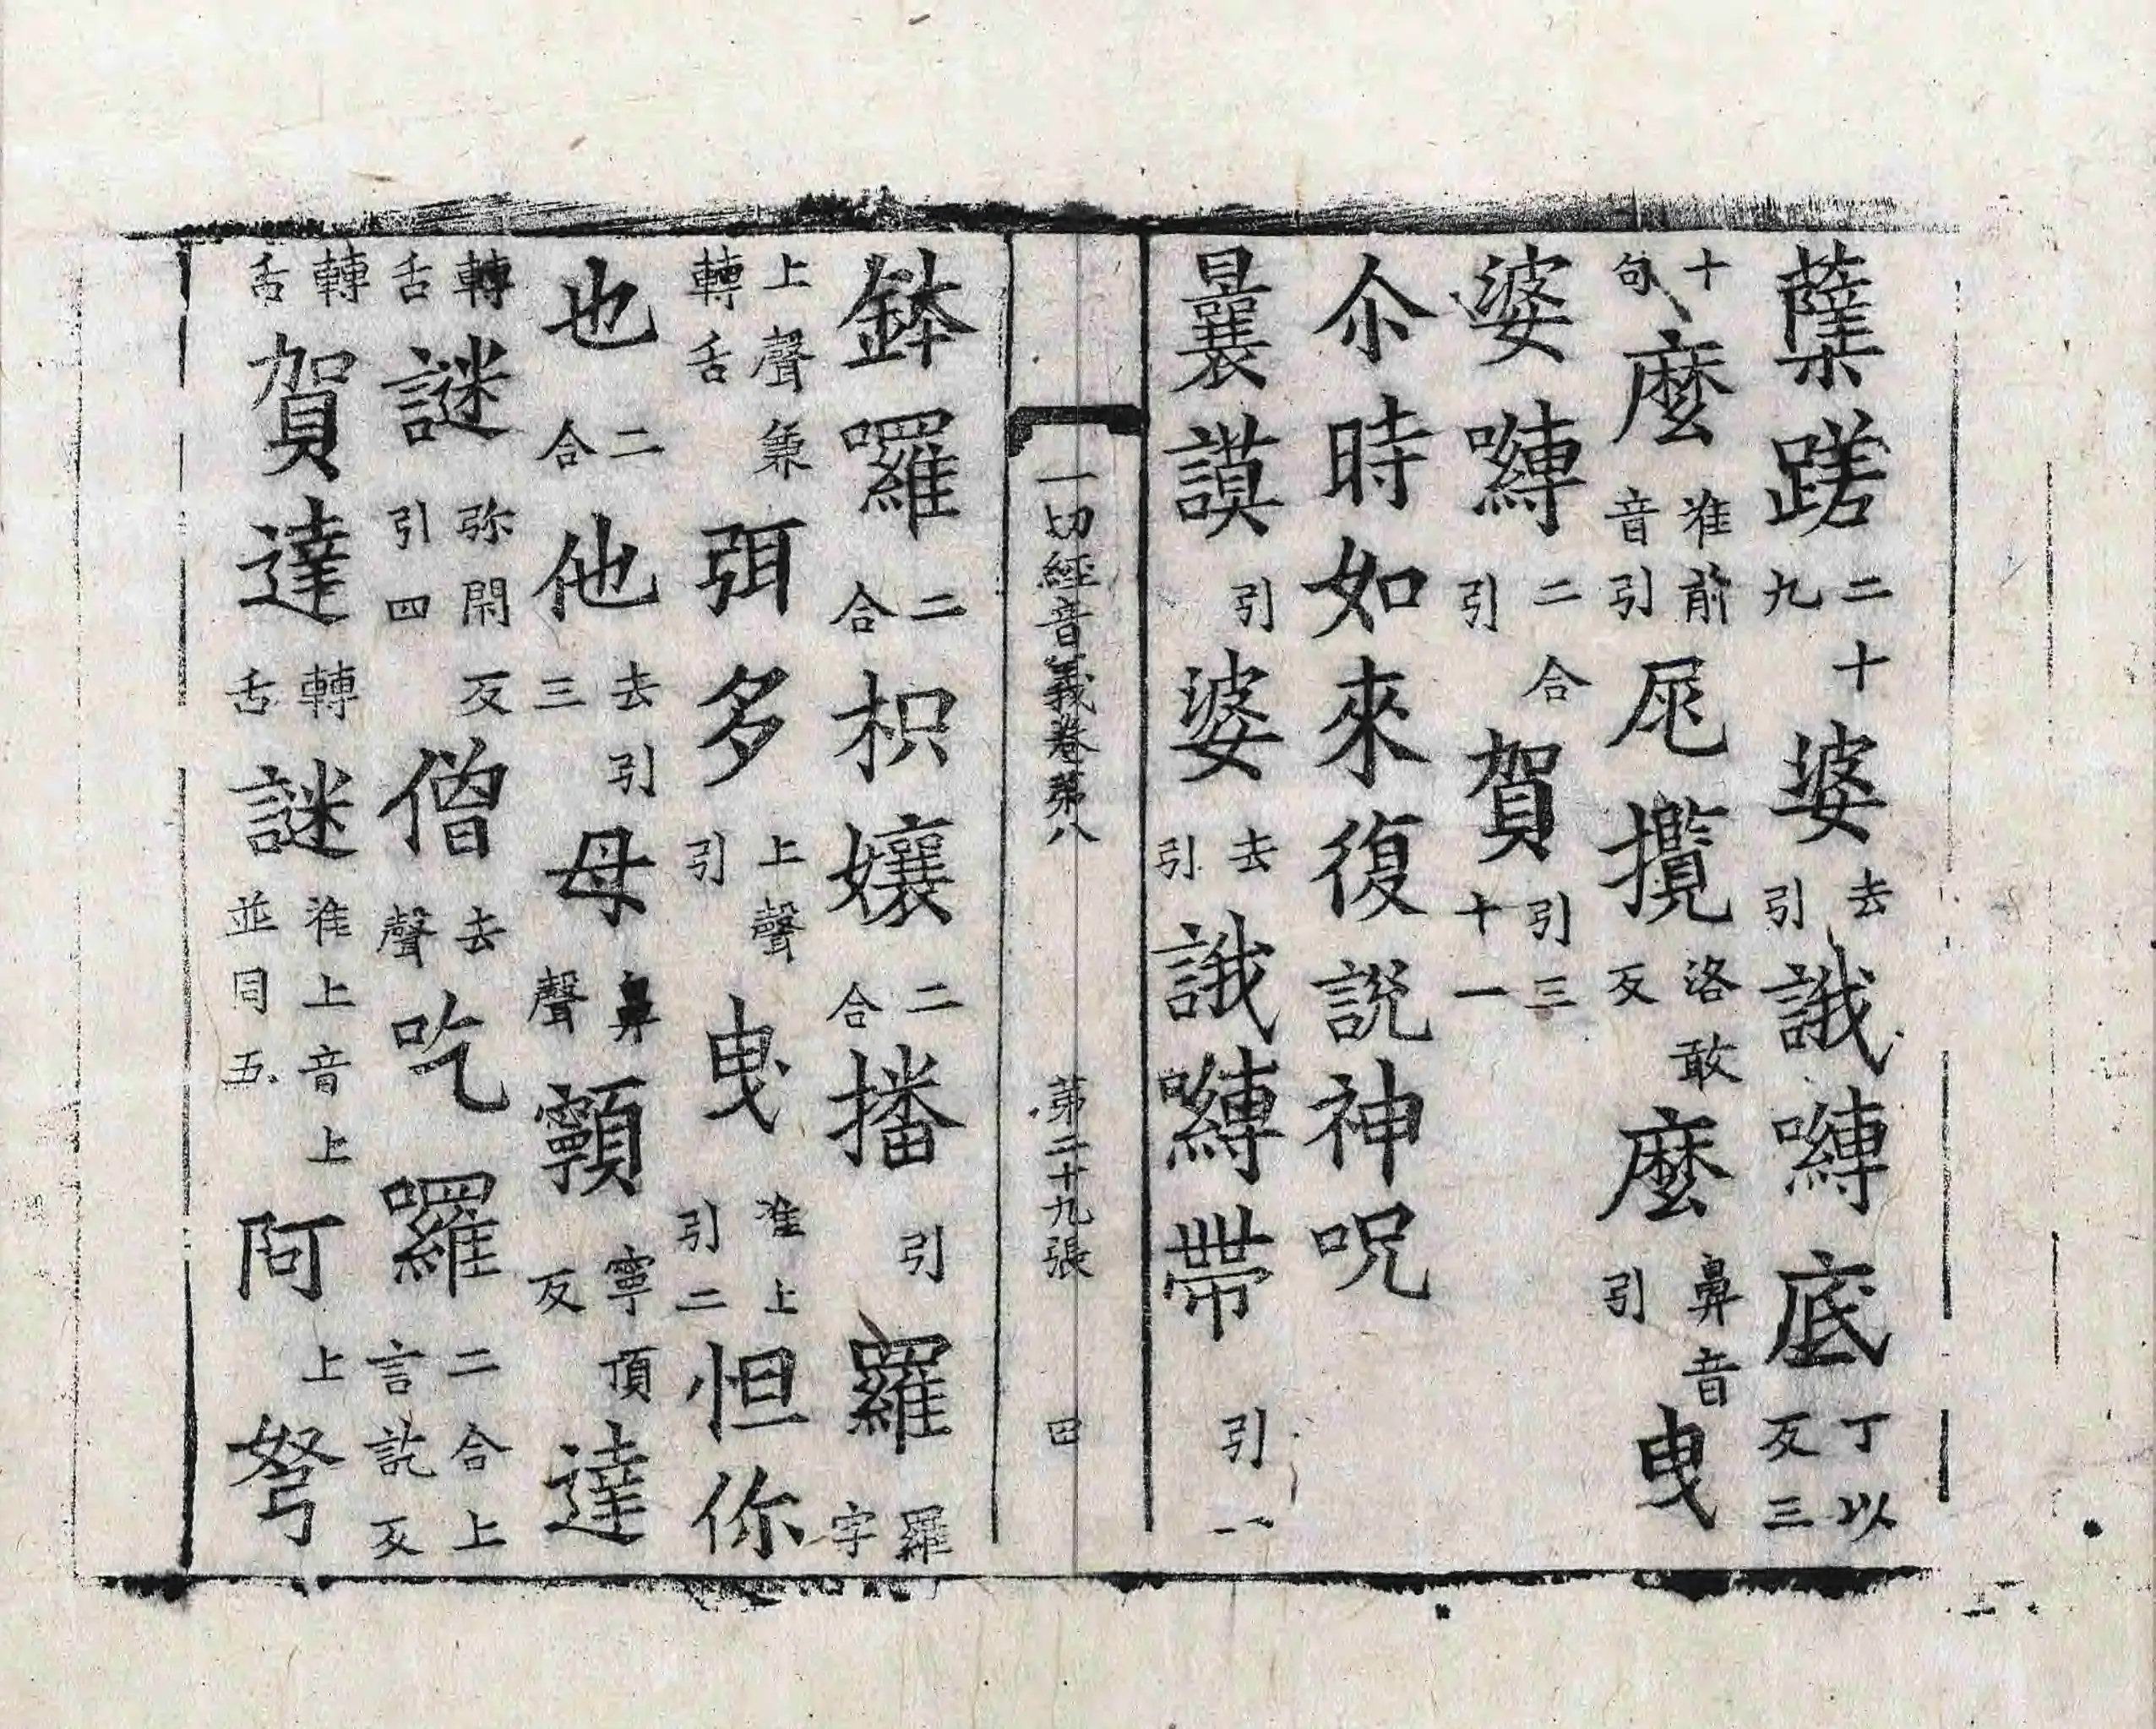 薩蹉二十九婆去引誐嚩底丁以反三
十句麼准前音引尾攬洛敢反麼鼻音引曳
婆嚩二合引賀引三十一
尒時如來復說神呪
曩謨引婆去引誐嚩帶引一
一切經音義卷第八 第二十九張 田
鉢囉二合枳孃二合播引羅羅字
上聲兼轉舌弭多上聲引曳准上引二怛你
也二合他去引三母鼻聲顊寧頂反達
轉舌謎弥閉反引四僧去聲吃囉二合上言訖反
轉舌賀達轉舌謎准上音上並同五阿上弩